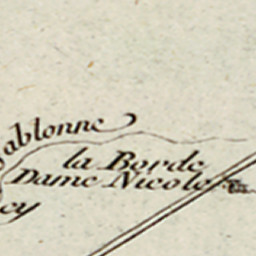 ablonne
la Borde
Dame Nicole
ey